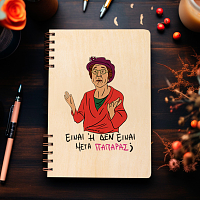 ΕΙΝΑΙ Ή ΔΕΝ ΕΙΝΑΙ
ΜΕΓΑ ΠΑΠΑΡΑΣ;